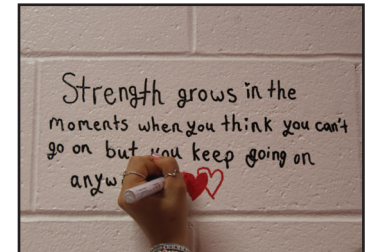 Strength grows in the
moments when you think you can't
go on but you keep going on
anyw